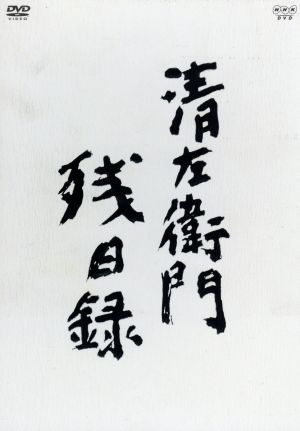 DVD
VIDEO
NHK
DVD
清左衛門
残日録